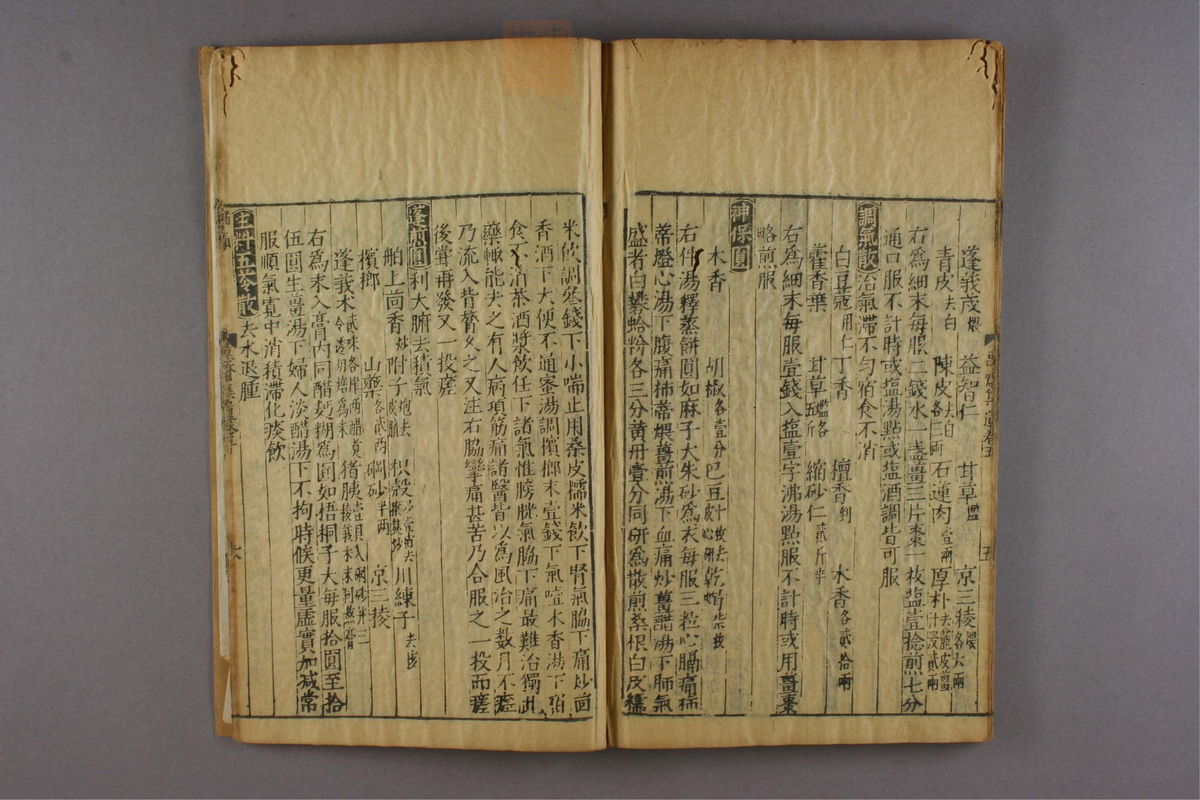 蓬莪茂煨 益智仁 甘草爁 京三稜煨各六兩
青皮去白 陳皮去白各三兩 石蓮肉壹兩 厚朴去麄皮薑汁浸貳兩
右爲細末每服二錢水一盞薑三片棗一枚塩壹捻煎七分
通口服不計時或塩湯㸃或塩酒調皆可服
調氣散治氣滯不勻宿食不消
白豆蔲用仁 丁香 檀香剉 木香各貳拾兩
藿香葉 甘草爁各五斤 縮砂仁貳斤半
右爲細末每服壹錢入塩壹字沸湯㸃服不計時或用薑棗
略煎服
神保圓
木香 胡椒各壹分 巴豆十枚去皮心研 乾蝎柒枚
右件湯釋蒸餅圓如麻子大朱砂爲衣每服三粒心膈痛柿
蒂燈心湯下腹痛柿蒂煨薑煎湯下血痛炒薑醋湯下肺氣
盛者白礬蛤粉各三分黄丹壹分同研爲散煎桑根白皮糯
米飲調叁錢下小喘止用桑皮糯米飲下腎氣脇下痛炒茴
香酒下大便不通蜜湯調檳榔末壹錢下氣噎木香湯下宿
食不消茶酒漿飲任下諸氣惟膀胱氣脇下痛最難治獨此
藥輙能去之有人病項筋痛諸醫皆以爲風治之数月不瘥
乃流入背膂久之又注右脇攣痛甚苦乃合服之一投而瘥
後嘗再發又一投瘥
蓬煎圓利大腑去積氣
舶上茴香炒 附子炮去皮臍 枳殼去穰麸炒 川練子去核
檳榔 山藥各貳兩 硇砂半兩 京三稜
蓬莪术 猪胰壹具
右爲末入膏内同醋麪糊爲圓如梧桐子大每服拾圓至拾
伍圓生薑湯下婦人淡醋湯下不拘時候更量虚實加减常
服順氣寛中消積滯化痰飲
生料五苓散去水退腫
五
六